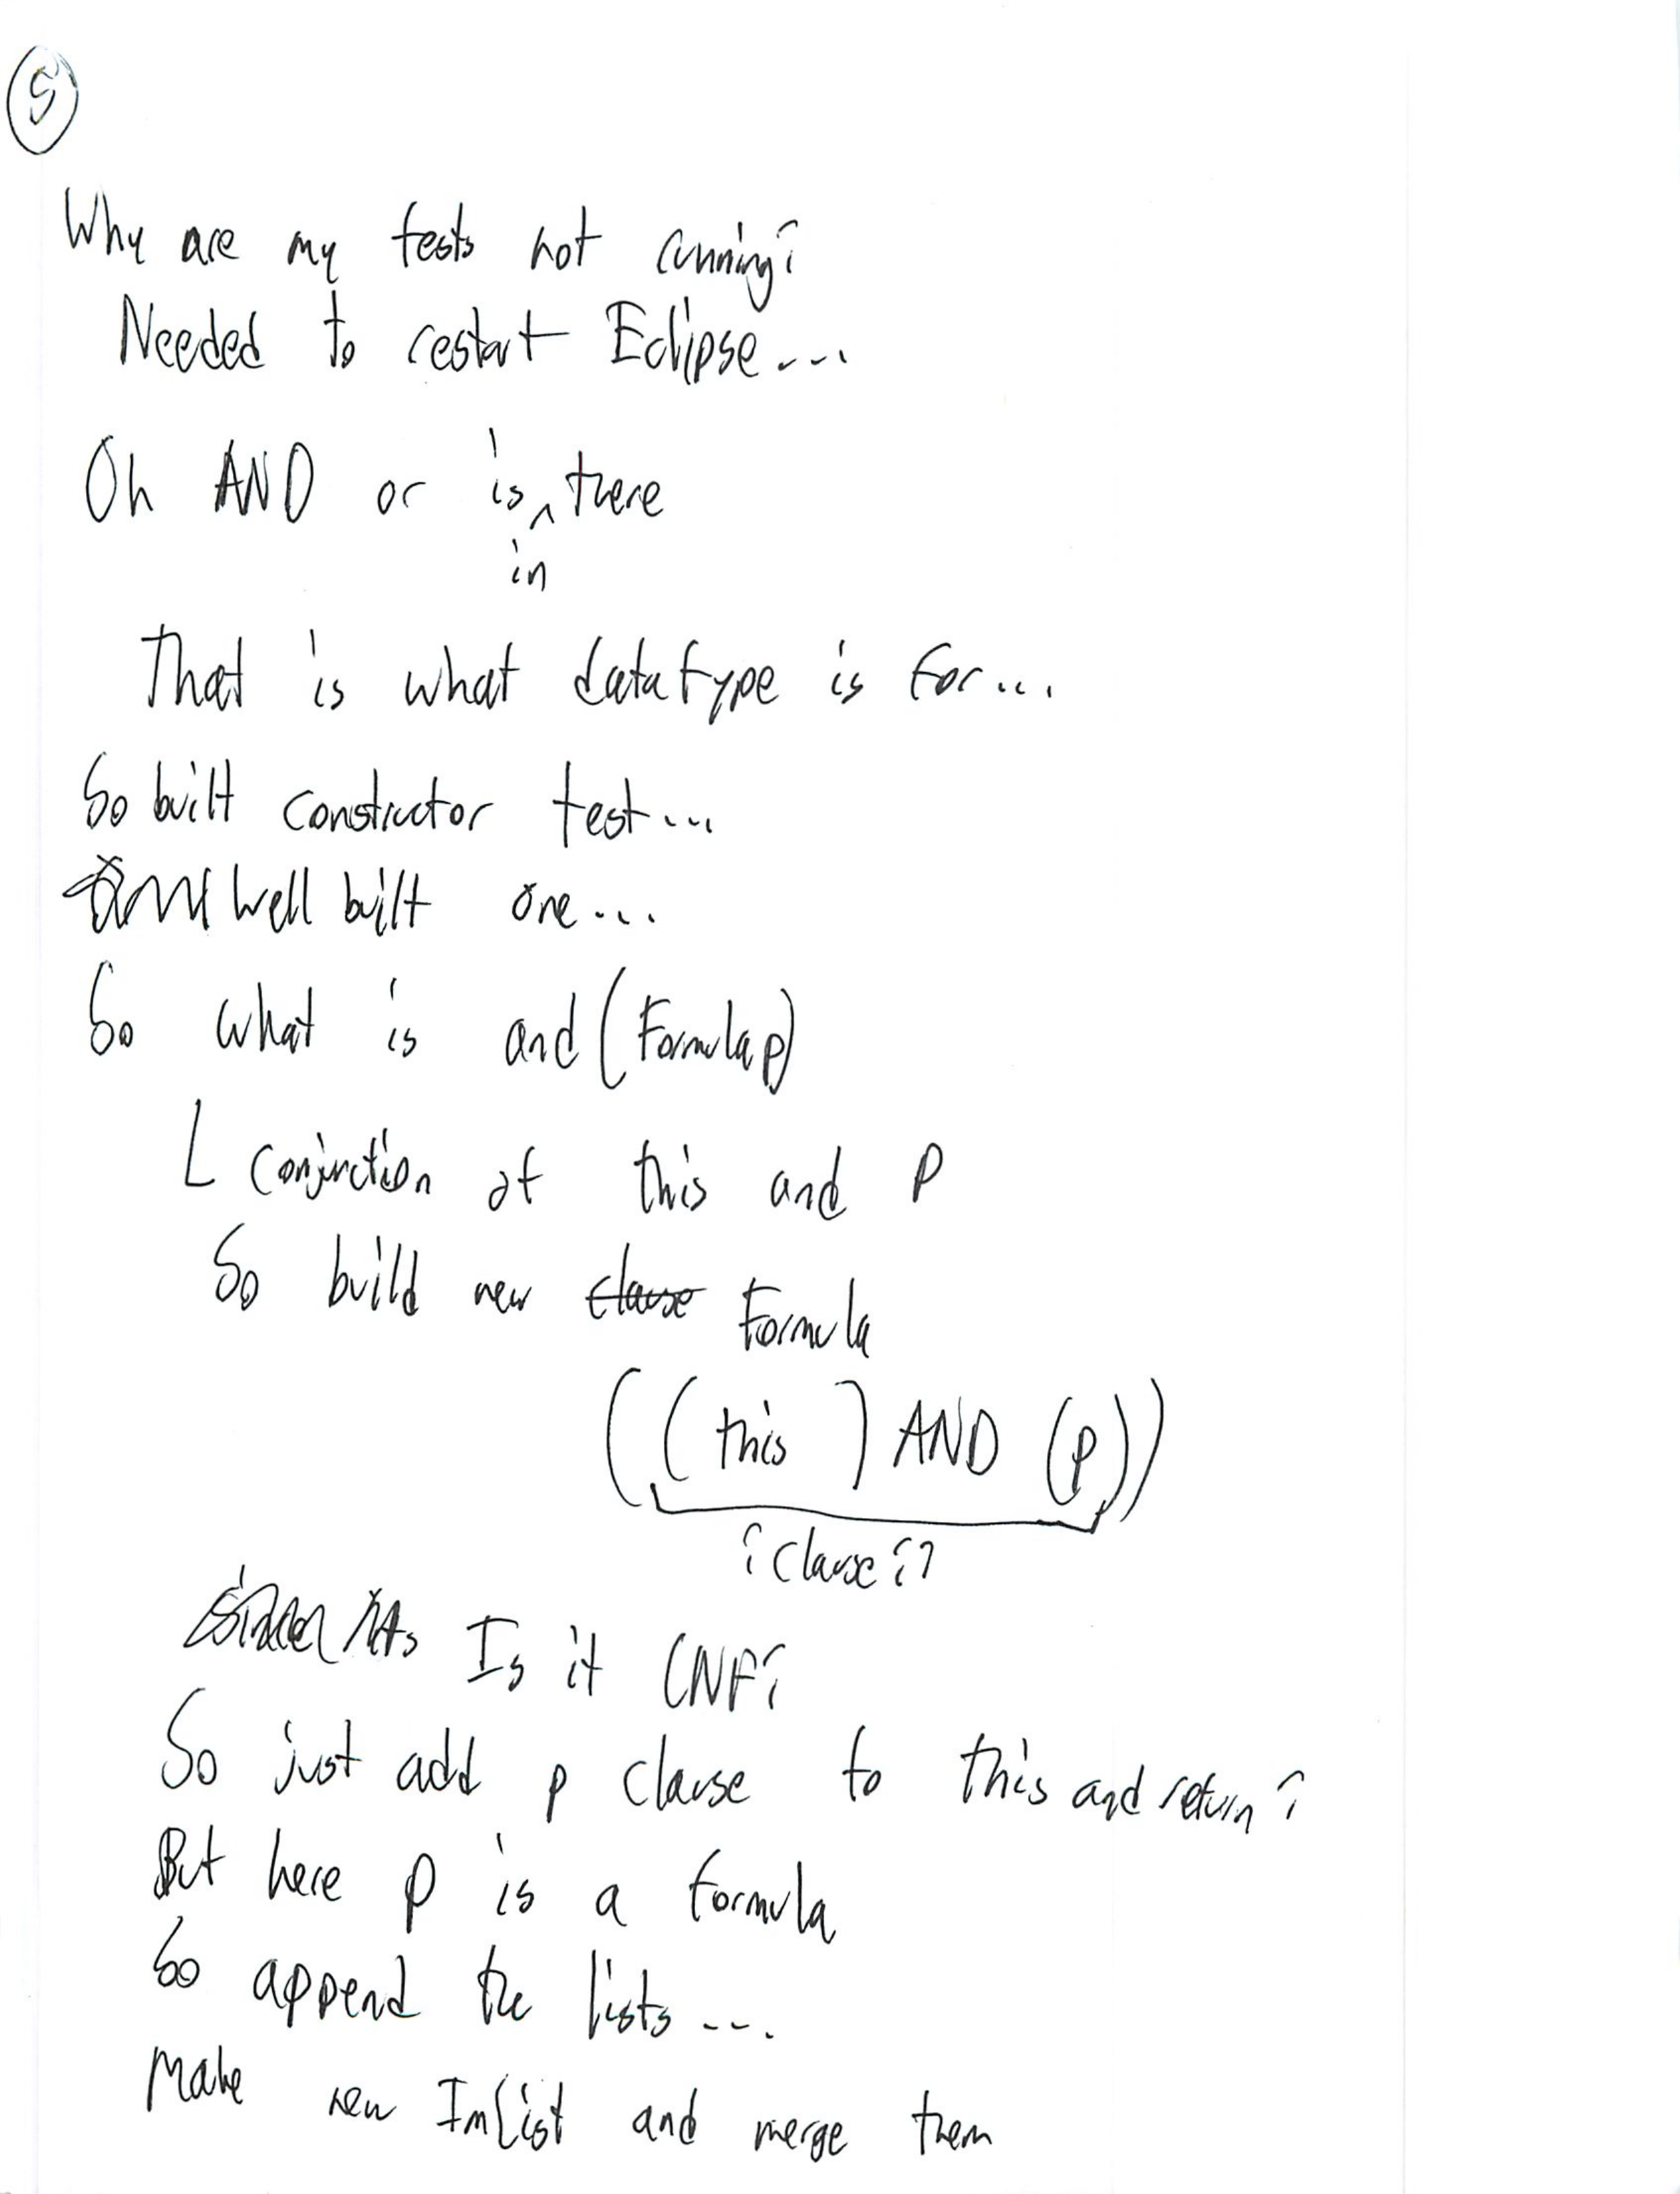 5
Why are my tests not running?
Needed to restart Eclipse...
Oh AND or is in there
That is what datatype is for...
So built constructor test...
well built one...
So what is and (Formula p)
L conjunction of this and p
So build new clause Formula
((this) AND (p))
? clause ??
Is it CNF?
So just add p clause to this and return?
But here p is a formula
So append the lists...
Make new ImList and merge them